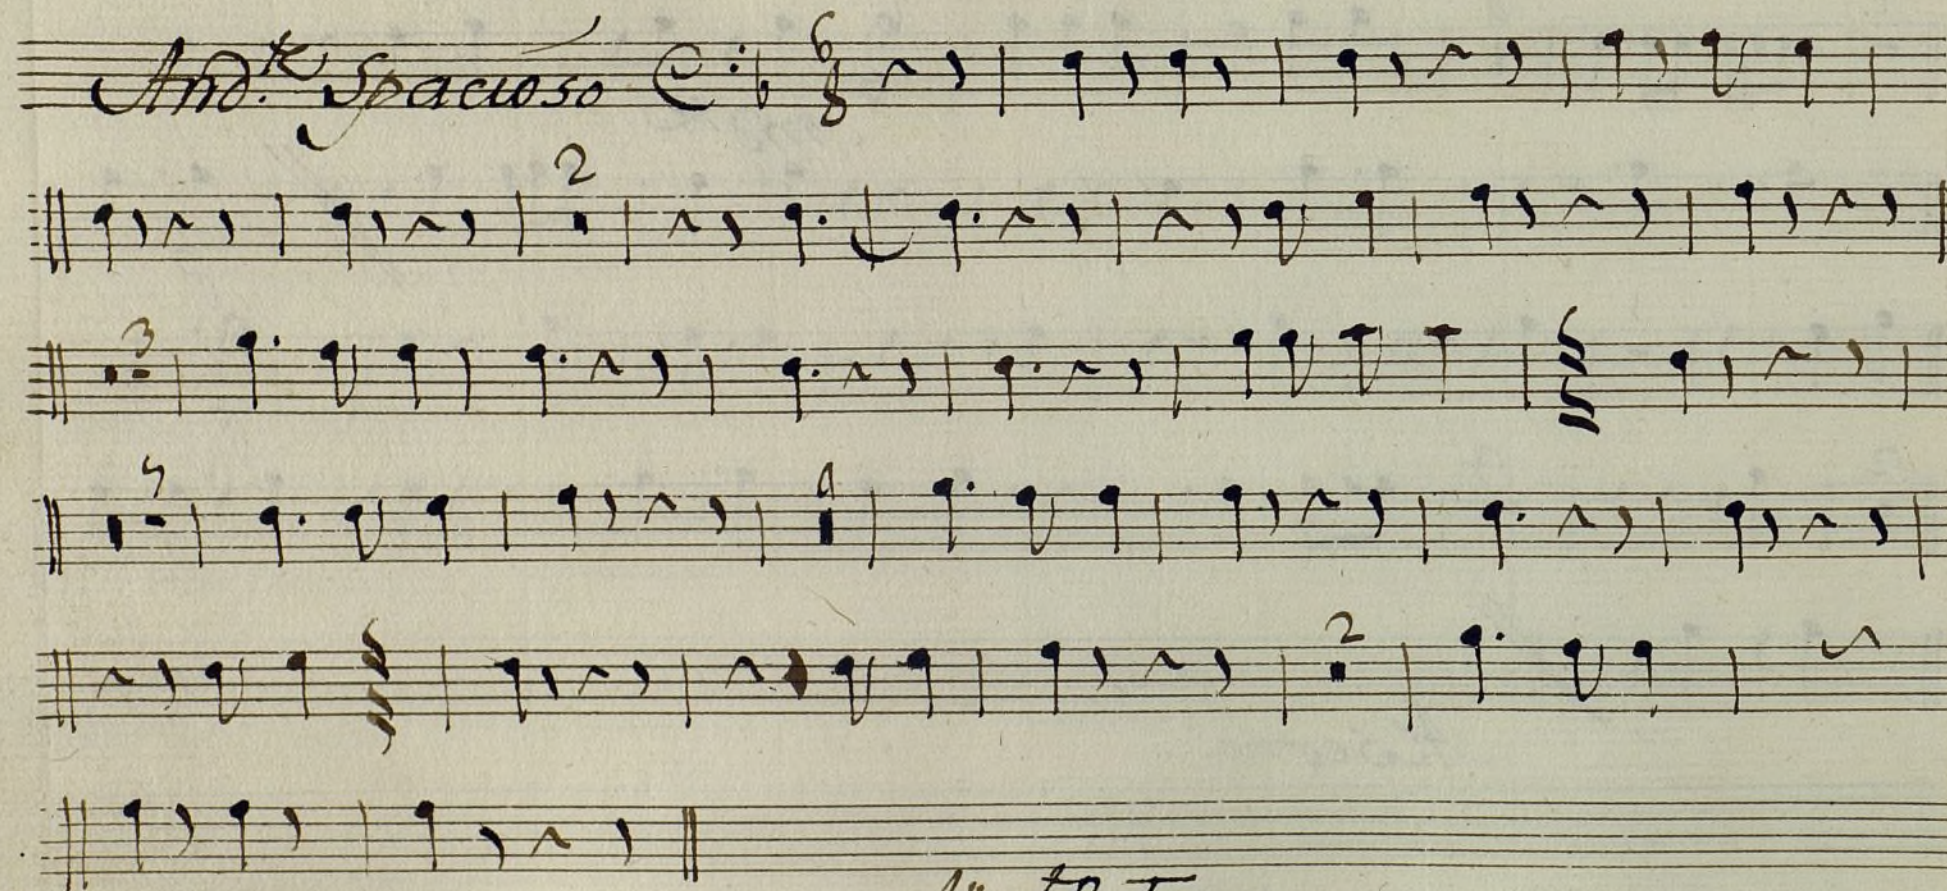 And.te Spacioso 6 8
2
3
5
4
2